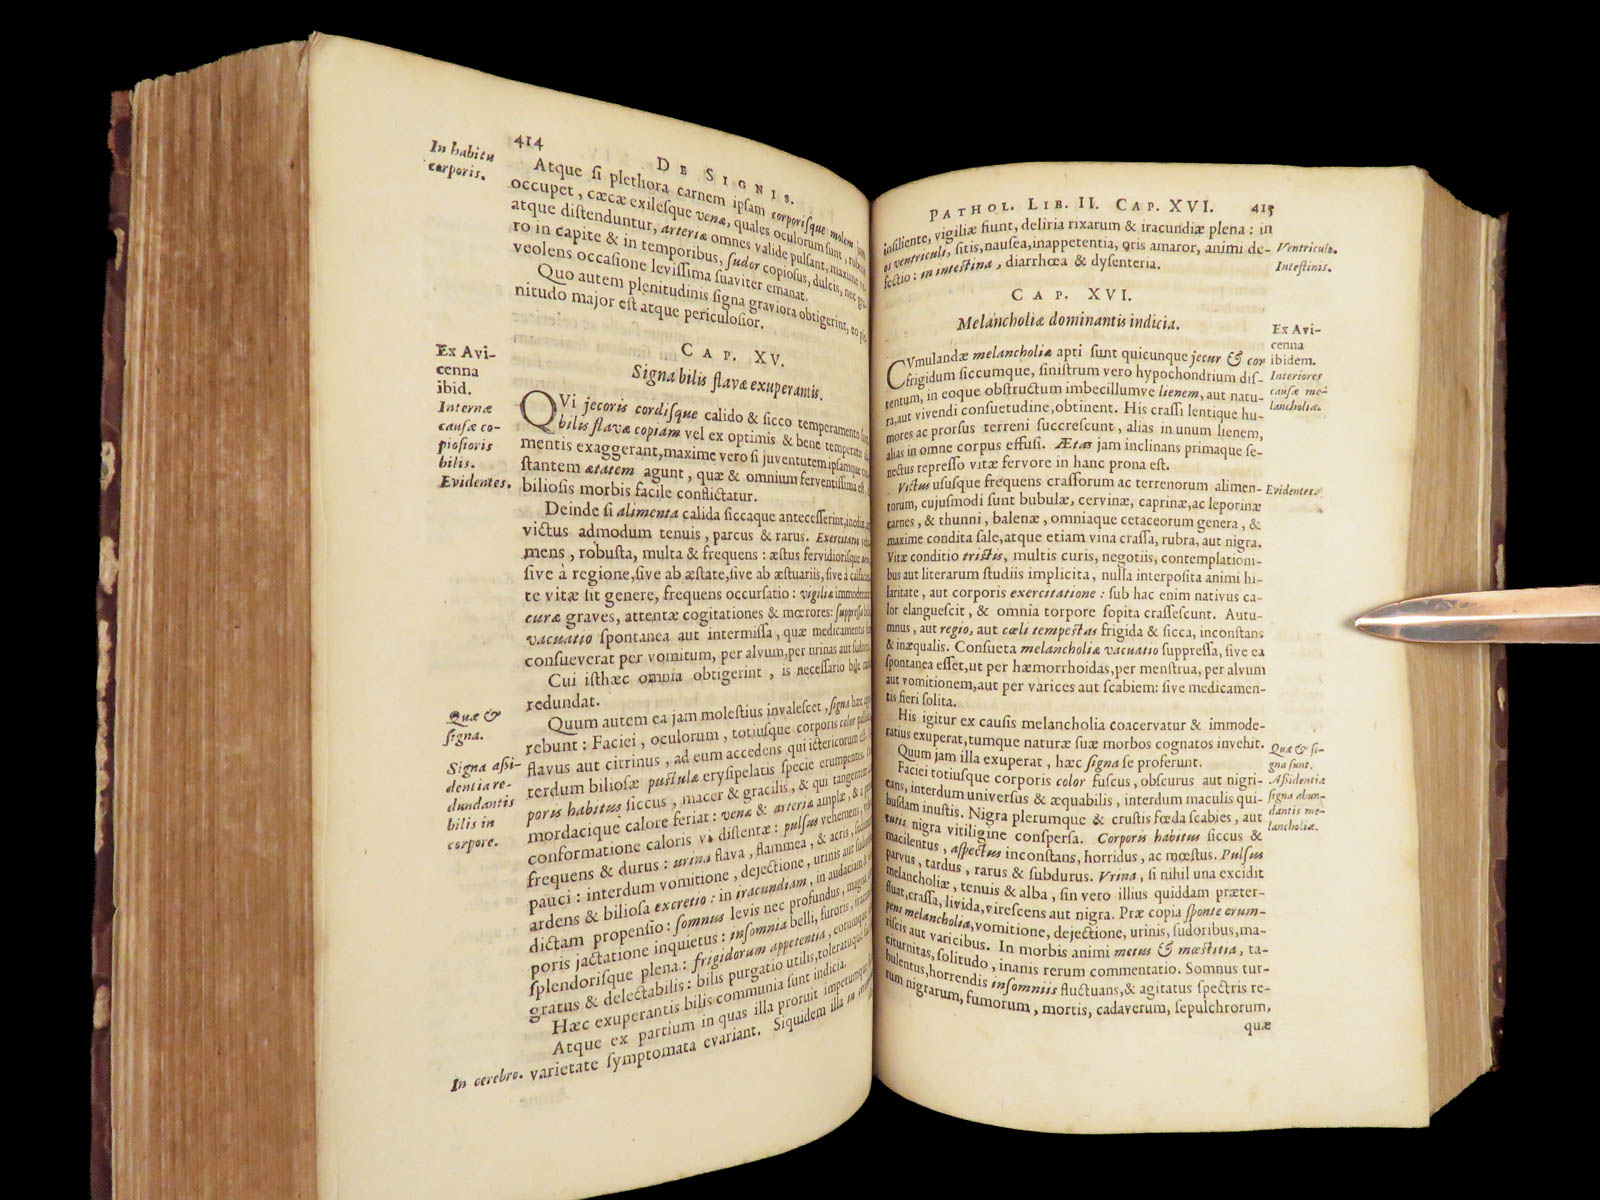 414
DE SIGNIS.
In habitu
corporis.
Atque ſi plethora carnem ipſam corporiſque molem jam
occupet, cæcæ exileſque venæ, quales oculorum ſunt,
atque diſtenduntur, arteriæ omnes valide pulſant, maxime ve-
ro in capite & in temporibus, ſudor copioſus, dulcis, nec gra-
veolens occaſione leviſſima ſuaviter emanat.
Quo autem plenitudinis ſigna graviora obtigerint, eo ple-
nitudo major eſt atque periculoſior.
CAP. XV.
Signa bilis flavæ exuperantis.
Ex Avi-
cenna
ibid.
Internæ
cauſæ co-
pioſioris
bilis.
Evidentes.
QVi jecoris cordiſque calido & ſicco temperamento ſunt,
bilis flavæ copiam vel ex optimis & bene temperatis
mentis exaggerant, maxime vero ſi juventutem ipſamque
ſtantem ætatem agunt, quæ & omnium ferventiſſima eſt
bilioſis morbis facile conflictatur.
Deinde ſi alimenta calida ſiccaque anteceſſerint,
victus admodum tenuis, parcus & rarus. Exercitatio
mens, robuſta, multa & frequens: æſtus fervidioriſque
ſive à regione, ſive ab æſtate, ſive ab æſtuariis, ſive à
te vitæ ſit genere, frequens occurſatio: vigiliæ immoderatæ
curæ graves, attentæ cogitationes & mœrores: ſuppreſſa
vacuatio ſpontanea aut intermiſſa, quæ medicamentis
conſueverat per vomitum, per alvum, per urinas aut ſudores.
Cui iſthæc omnia obtigerint, is neceſſario bile
redundat.
Quæ &
ſigna.
Signa aſſi-
dentia re-
dundantis
bilis in
corpore.
Quum autem ea jam moleſtius invaleſcet, ſigna hæc
rebunt: Faciei, oculorum, totiuſque corporis color
flavus aut citrinus, ad eum accedens qui ictericorum eſt.
terdum bilioſæ puſtulæ eryſipelatis ſpecie erumpentes.
poris habitus ſiccus, macer & gracilis, & qui tangentem
mordacique calore feriat: venæ & arteriæ amplæ, &
conformatione caloris vi diſtentæ: pulſus vehemens,
frequens & durus: urina flava, flammea, & acris,
pauci: interdum vomitione, dejectione, urinis aut ſudore
ardens & bilioſa excretio: in iracundiam, in audaciam &
dictam propenſio: ſomnus levis nec profundus, magna
poris jactatione inquietus: inſomnia belli, furoris,
ſplendoriſque plena: frigidorum appetentia, eorumque
gratus & delectabilis: bilis purgatio utilis, toleratuque
Hæc exuperantis bilis communia ſunt indicia.
Atque ex partium in quas illa proruit impetumque
In cerebro.
varietate ſymptomata evariant. Siquidem illa in
PATHOL. LIB. II. CAP. XVI. 415
inſiliente, vigiliæ fiunt, deliria rixarum & iracundiæ plena: in
os ventriculi, ſitis, nauſea, inappetentia, oris amaror, animi de-
fectio: in inteſtina, diarrhœa & dyſenteria.
Ventriculo.
Inteſtinis.
CAP. XVI.
Melancholiæ dominantis indicia.
Ex Avi-
cenna
ibidem.
Interiores
cauſæ me-
lancholiæ.
CVmulandæ melancholiæ apti ſunt quicunque jecur & cor
frigidum ſiccumque, ſiniſtrum vero hypochondrium diſ-
tentum, in eoque obſtructum imbecillumve lienem, aut natu-
ra, aut vivendi conſuetudine, obtinent. His craſſi lentique hu-
mores ac prorſus terreni ſuccreſcunt, alias in unum lienem,
alias in omne corpus effuſi. Ætas jam inclinans primaque ſe-
nectus repreſſo vitæ fervore in hanc prona eſt.
Victus uſuſque frequens craſſorum ac terrenorum alimen-
torum, cujuſmodi ſunt bubulæ, cervinæ, caprinæ, ac leporinæ
carnes, & thunni, balenæ, omniaque cetaceorum genera, &
maxime condita ſale, atque etiam vina craſſa, rubra, aut nigra.
Vitæ conditio triſtis, multis curis, negotiis, contemplationi-
bus aut literarum ſtudiis implicita, nulla interpoſita animi hi-
laritate, aut corporis exercitatione: ſub hac enim nativus ca-
lor elangueſcit, & omnia torpore ſopita craſſeſcunt. Autu-
mnus, aut regio, aut cœli tempeſtas frigida & ſicca, inconſtans
& inæqualis. Conſueta melancholiæ vacuatio ſuppreſſa, ſive ea
ſpontanea eſſet, ut per hæmorrhoidas, per menſtrua, per alvum
aut vomitionem, aut per varices aut ſcabiem: ſive medicamen-
tis fieri ſolita.
Evidentes.
His igitur ex cauſis melancholia coacervatur & immode-
ratius exuperat, tumque naturæ ſuæ morbos cognatos invehit.
Quum jam illa exuperat, hæc ſigna ſe proferunt.
Quæ & ſi-
gna ſunt.
Aſſidentia
ſigna abun-
dantis me-
lancholiæ.
Faciei totiuſque corporis color fuſcus, obſcurus aut nigri-
cans, interdum univerſus & æquabilis, interdum maculis qui-
buſdam inuſtis. Nigra plerumque & cruſtis fœda ſcabies, aut
cutis nigra vitiligine conſperſa. Corporis habitus ſiccus &
macilentus, aſpectus inconſtans, horridus, ac mœſtus. Pulſus
parvus, tardus, rarus & ſubdurus. Vrina, ſi nihil una excidit
melancholiæ, tenuis & alba, ſin vero illius quiddam præter-
fluat, craſſa, livida, vireſcens aut nigra. Præ copia ſponte erum-
pens melancholia, vomitione, dejectione, urinis, ſudoribus, ma-
riſcis aut varicibus. In morbis animi metus & mœſtitia, ta-
citurnitas, ſolitudo, inanis rerum commentatio. Somnus tur-
bulentus, horrendis inſomniis fluctuans, & agitatus ſpectris re-
rum nigrarum, fumorum, mortis, cadaverum, ſepulchrorum,
quæ